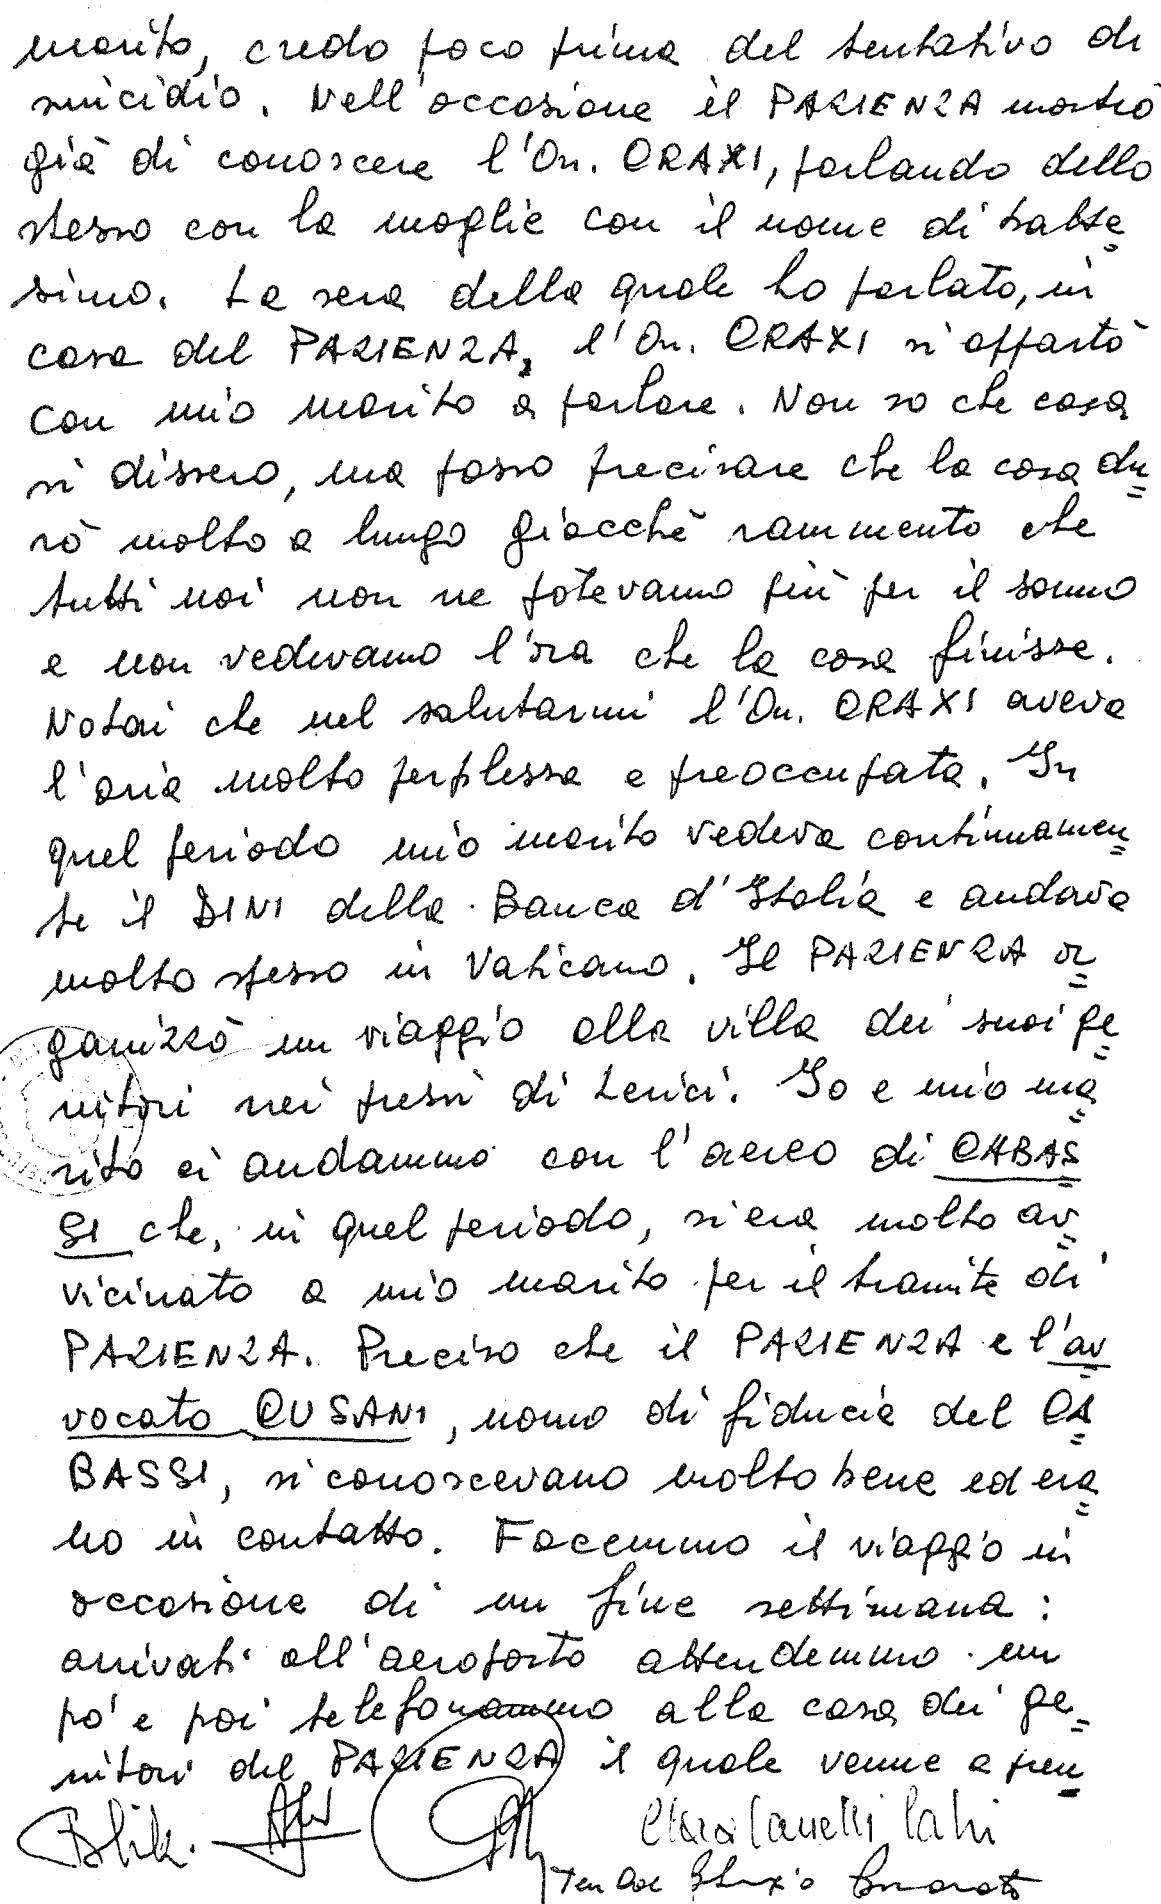 marito, credo poco prima del tentativo di
suicidio. Nell'occasione il PAZIENZA mostrò
già di conoscere l'On. CRAXI, parlando dello
stesso con la moglie con il nome di batte=
simo. La sera della quale ho parlato, in
casa del PAZIENZA, l'On. CRAXI si appartò
con mio marito a parlare. Non so che cosa
si dissero, ma posso precisare che la cosa du=
rò molto a lungo giacchè rammento che
tutti noi non ne potevamo più per il sonno
e non vedevamo l'ora che la cosa finisse.
Notai che nel salutarmi l'On. CRAXI aveva
l'aria molto perplessa e preoccupata. In
quel periodo mio marito vedeva continuamen=
te il DINI della Banca d'Italia e andava
molto spesso in Vaticano. Il PAZIENZA or=
ganizzò un viaggio alla villa dei suoi ge=
nitori nei pressi di Lerici. Io e mio ma=
rito ci andammo con l'aereo di CABAS=
SI che, in quel periodo, si era molto av=
vicinato a mio marito per il tramite di
PAZIENZA. Preciso che il PAZIENZA e l'av=
vocato CUSANI, uomo di fiducia del CA=
BASSI, si conoscevano molto bene ed era=
no in contatto. Facemmo il viaggio in
occasione di un fine settimana:
arrivati all'aeroporto attendemmo un
po' e poi telefonammo alla casa dei ge=
nitori del PAZIENZA il quale venne a pren=
Clara Canetti Calvi
Ten Col